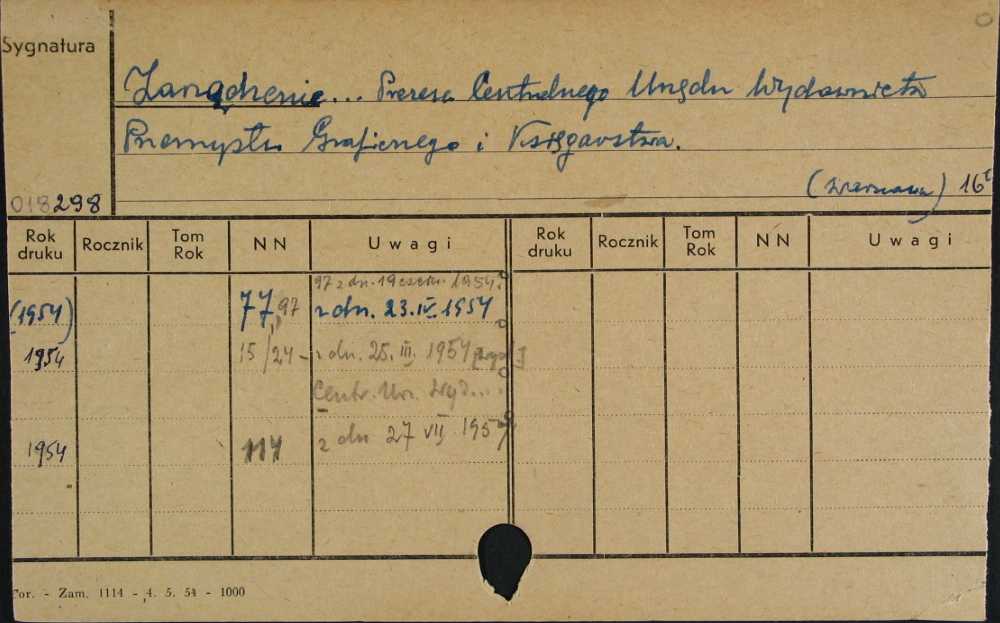 Sygnatura
Zarządzenie... Prezesa Centralnego Urzędu Wydawnictw
Przemysłu Graficznego i Księgarstwa.
(Warszawa) 16
018298
Rok druku Rocznik Tom Rok NN Uwagi Rok druku Rocznik Tom Rok NN Uwagi
97 z dn. 19 czerw. 1954.
(1954) 77, 97 z dn. 23.IV.1954
1954 15/24 - z dn. 25.III.1954
Centr. Urz. Wyd....
1954 114 z dn 27 VII 1954
Tor. - Zam. 1114 - 4. 5. 54 - 1000